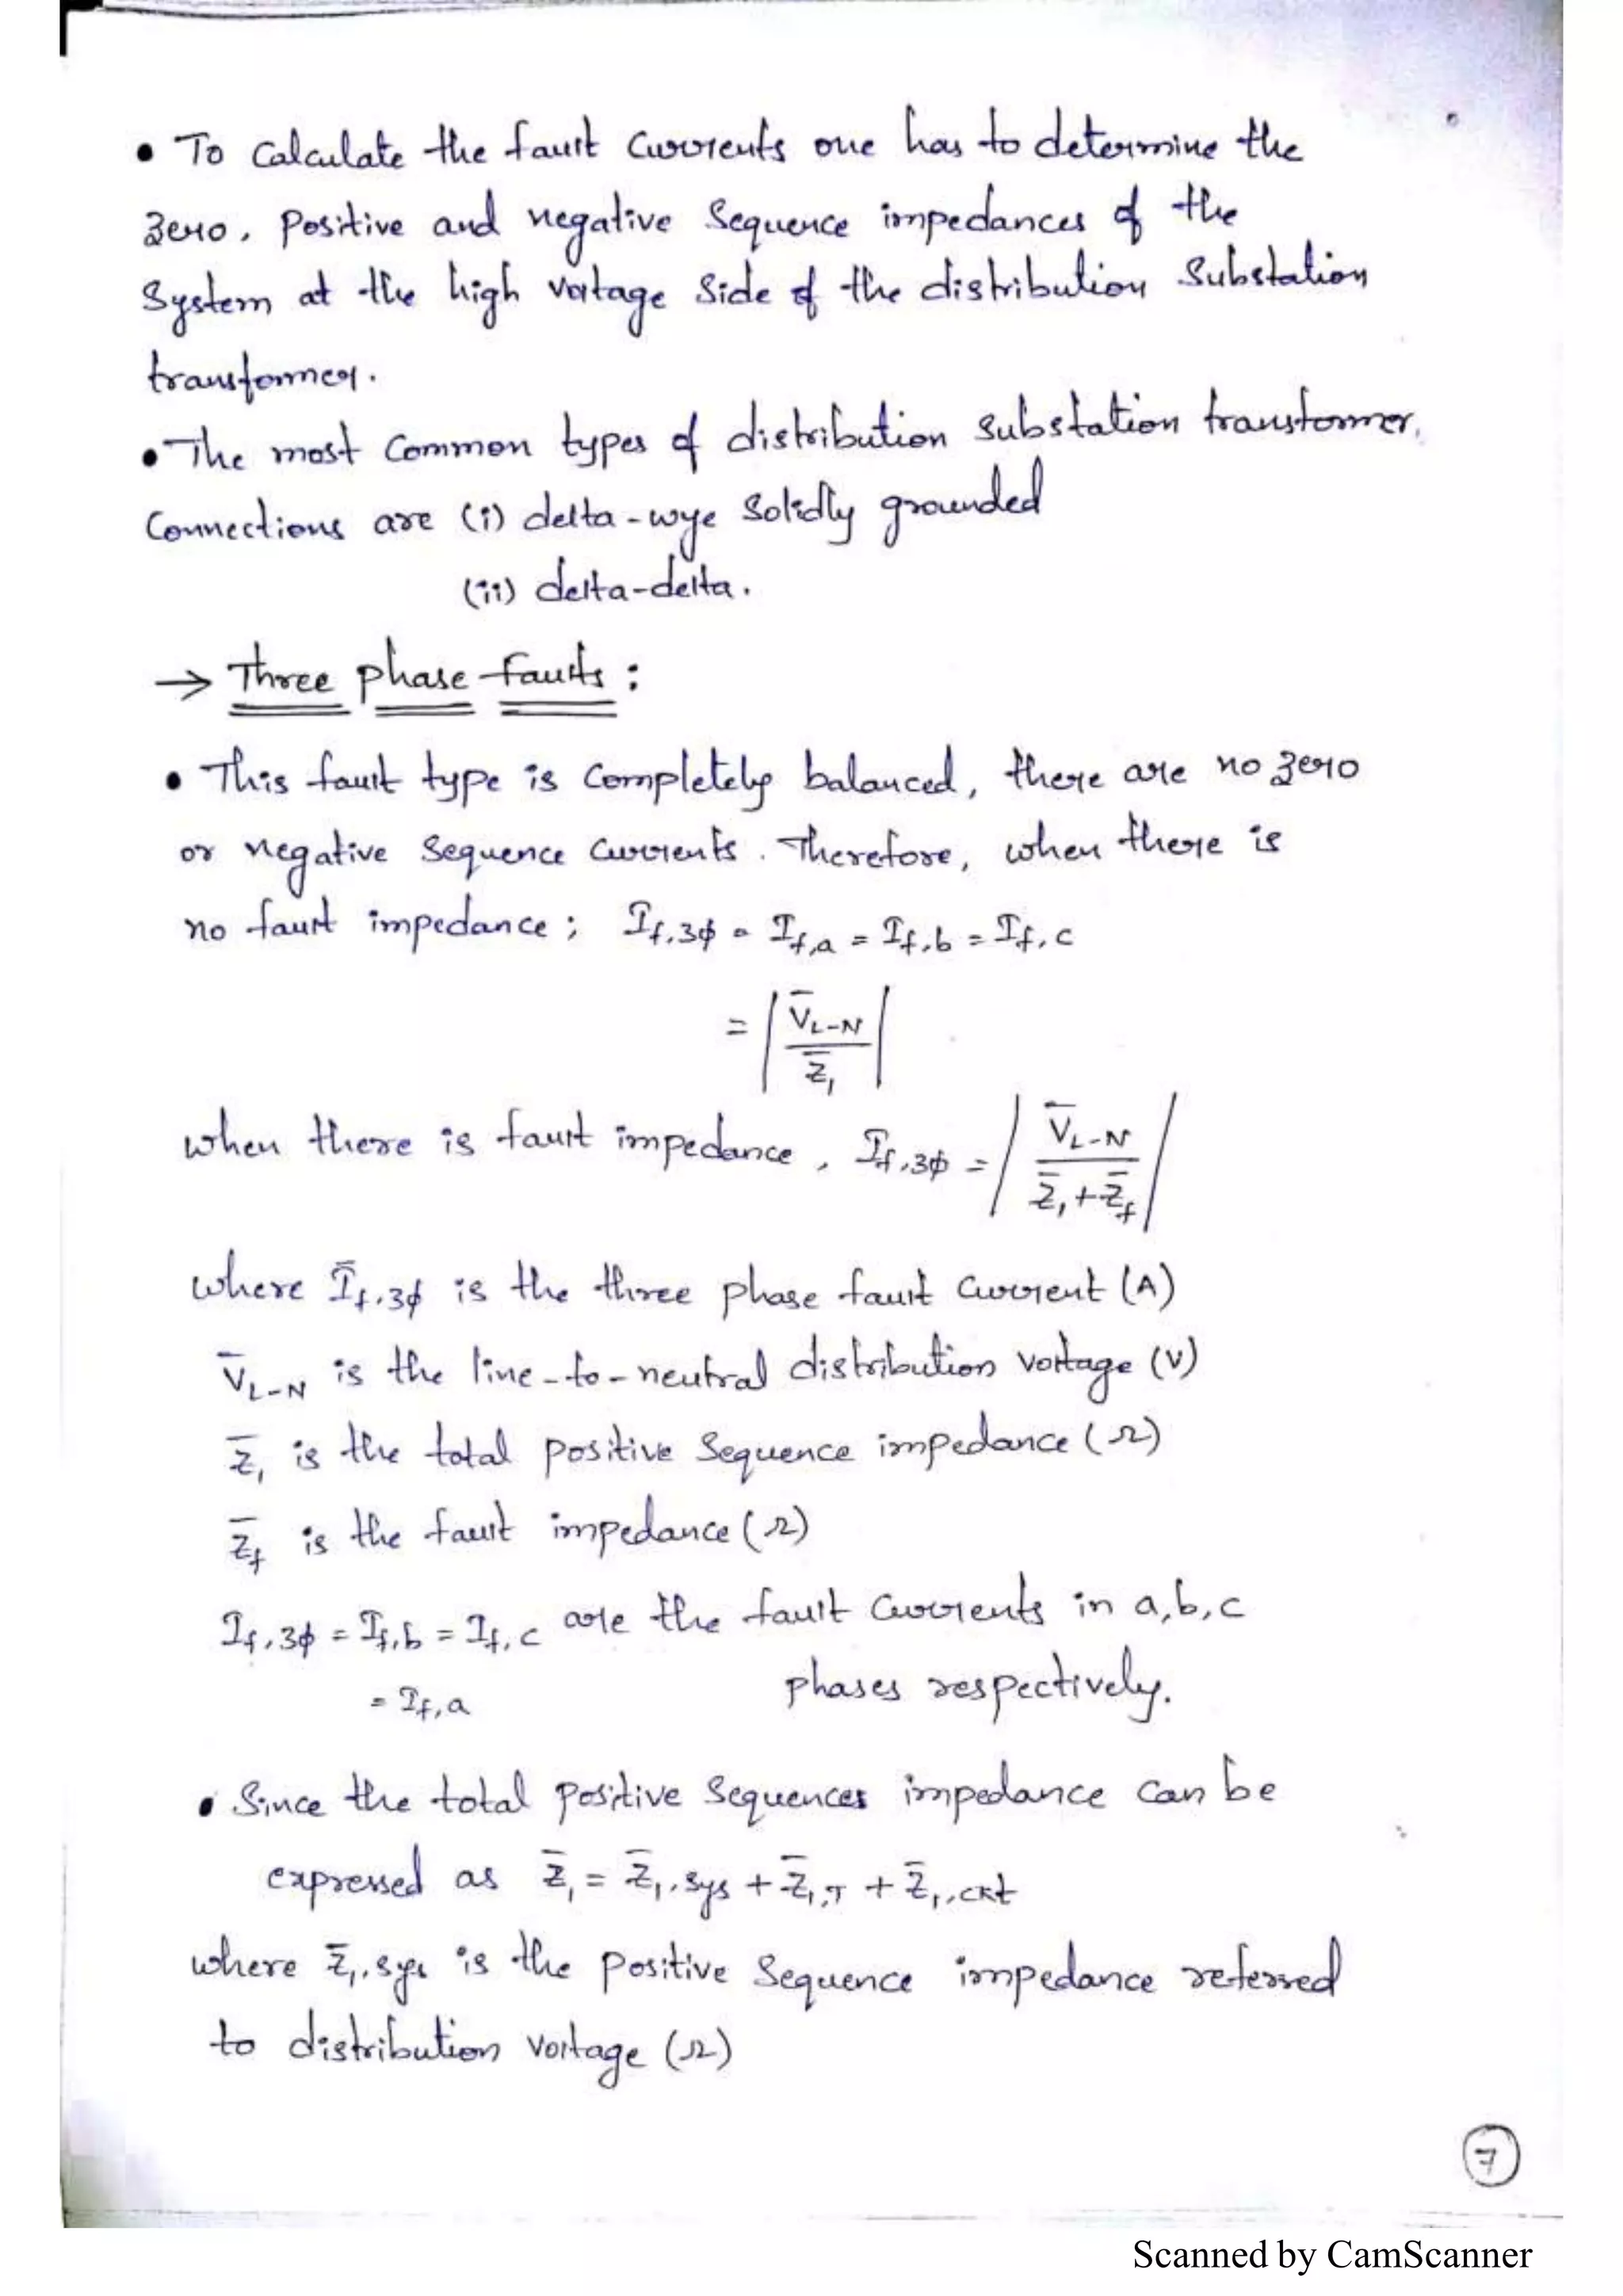 • To calculate the fault currents one has to determine the
zero, positive and negative sequence impedances of the
system at the high voltage side of the distribution substation
transformer.
• The most common types of distribution substation transformer,
connections are (i) delta-wye solidly grounded
(ii) delta-delta.
→ Three phase faults :
• This fault type is completely balanced, there are no zero
or negative sequence currents. Therefore, when there is
no fault impedance ; I_f,3ϕ = I_f,a = I_f,b = I_f,c
= | V̄_L-N / Z̄_1 |
when there is fault impedance, I_f,3ϕ = | V̄_L-N / Z̄_1 + Z̄_f |
where Ī_f,3ϕ is the three phase fault current (A)
V̄_L-N is the line-to-neutral distribution voltage (V)
Z̄_1 is the total positive sequence impedance (Ω)
Z̄_f is the fault impedance (Ω)
I_f,3ϕ = I_f,b = I_f,c are the fault currents in a,b,c
= I_f,a phases respectively.
• Since the total positive sequences impedance can be
expressed as Z̄_1 = Z̄_1,sys + Z̄_1,T + Z̄_1,ckt
where Z̄_1,sys is the positive sequence impedance referred
to distribution voltage (Ω)
7
Scanned by CamScanner